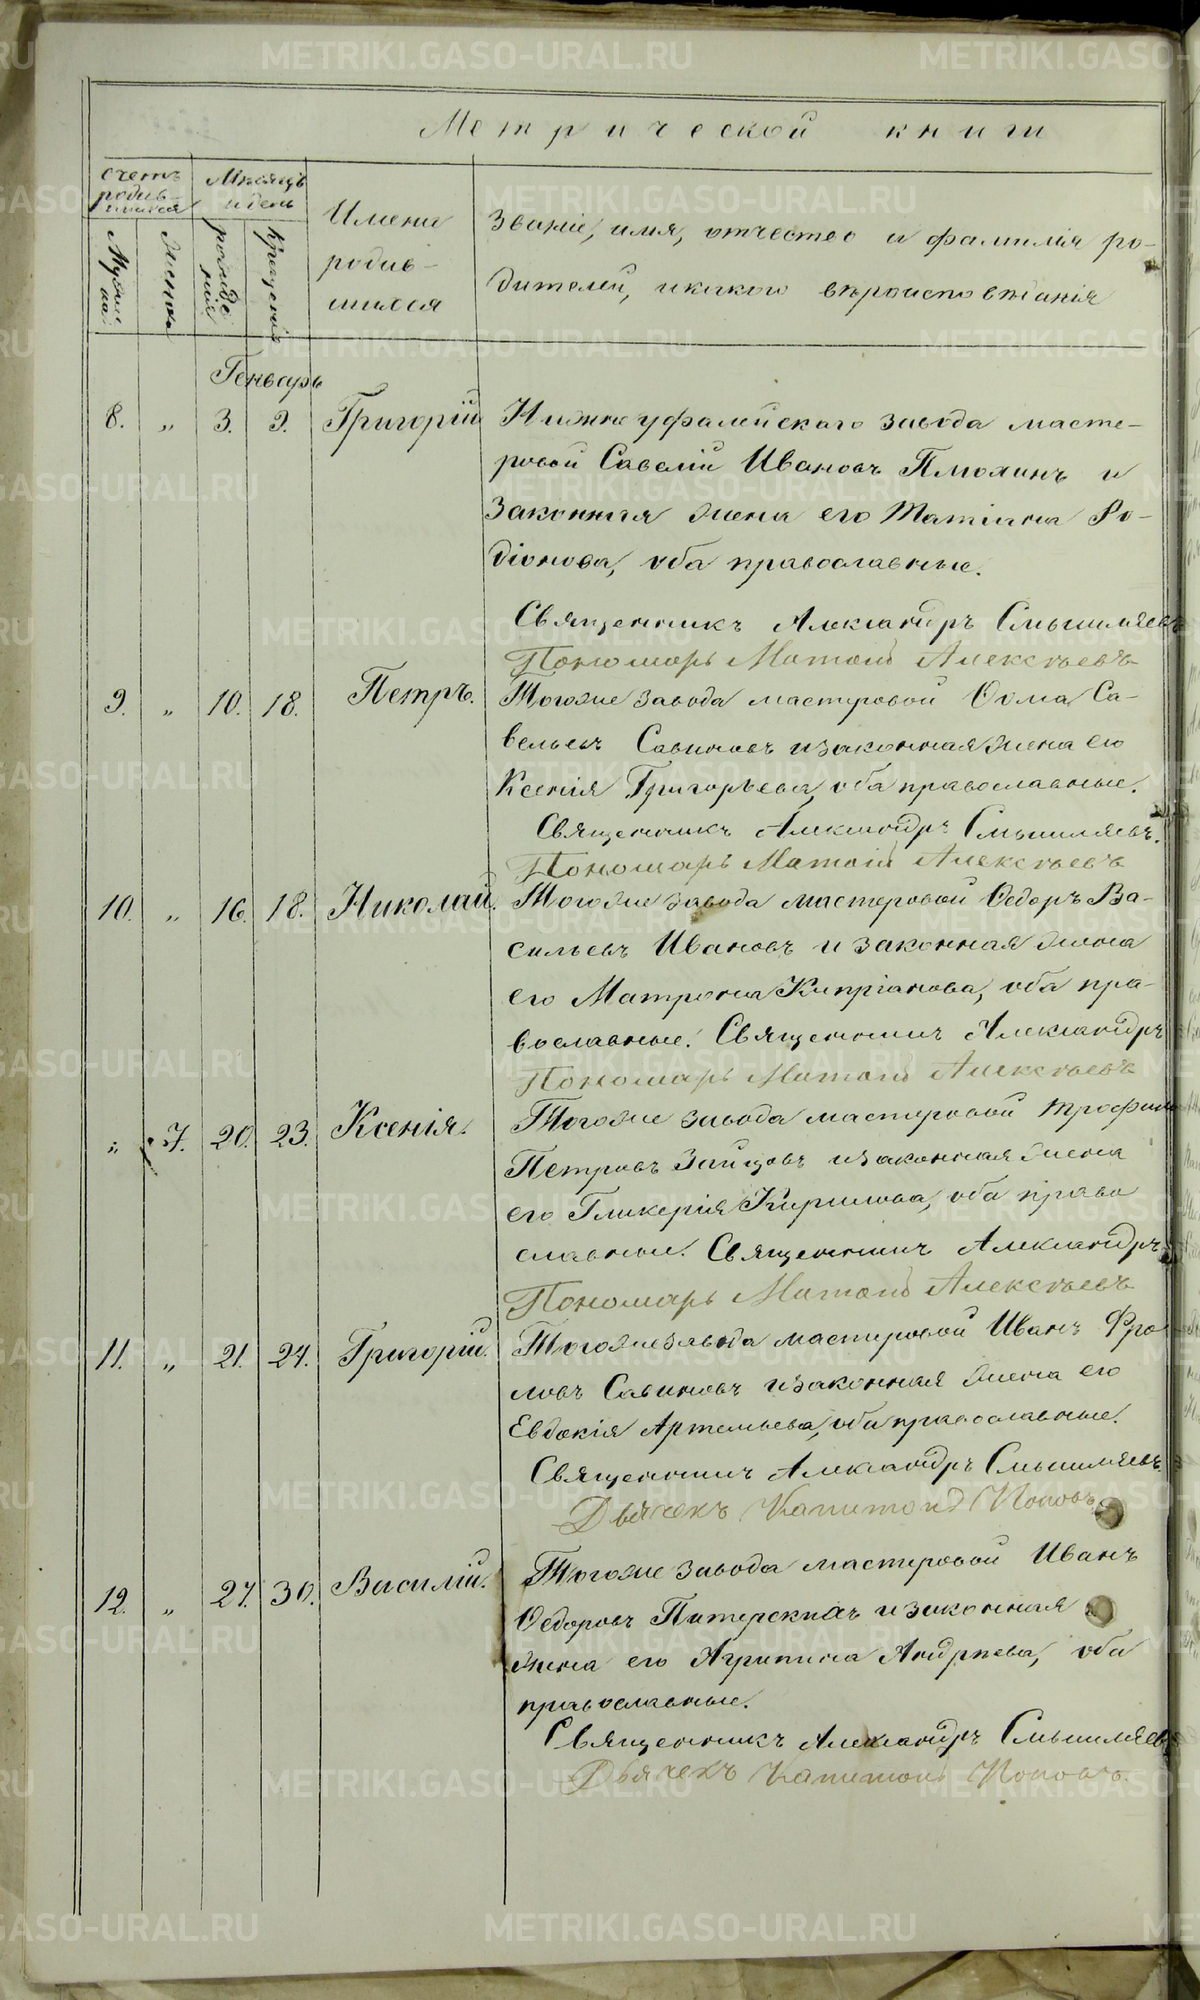 Метрической книги
Счетъ родив-
шихся
Мѣсяцъ
и день
Имена
родив-
шихся
Званіе, имя, отчество и фамилія ро-
дителей, и какого вѣроисповѣданія
Мужеска
Женска
рожде
нія
крещенія
Генварь
8. „ 3. 9. Григорій Нижнеуфалейскаго завода масте-
ровой Савелій Ивановъ Плюхинъ и
Законная жена его Татіана Ро-
діонова, оба православные.
Священникъ Александръ Смышляевъ
Пономарь Матвій Алексѣевъ
9. „ 10. 18. Петръ. Тогоже завода мастеровой Ѳома Са-
вельевъ Савиновъ и законная жена его
Ксенія Григорьева, оба православные.
Священникъ Александръ Смышляевъ.
Пономарь Матвій Алексѣевъ
10. „ 16. 18. Николай. Тогоже завода мастеровой Ѳедоръ Ва-
сильевъ Ивановъ и законная жена
его Матрона Кипріанова, оба пра-
вославные. Священникъ Александръ
Пономарь Матвій Алексѣевъ
„ 7. 20. 23. Ксенія. Тогоже завода мастеровой Трофимъ
Петровъ Зайцовъ и законная жена
его Гликерія Кирилова, оба право
славные. Священникъ Александръ
Пономарь Матвій Алексѣевъ
11. „ 21. 24. Григорій. Тогоже завода мастеровой Иванъ Фро
ловъ Савиновъ и законная жена его
Евдокія Артемьева, оба православные.
Священникъ Александръ Смышляевъ.
Дьячекъ Капитонъ Поповъ
12. „ 27. 30. Василій. Тогоже завода мастеровой Иванъ
Ѳедоровъ Питерскихъ и законная
жена его Агрипина Андреева, оба
православные.
Священникъ Александръ Смышляевъ
Дьячекъ Капитонъ Поповъ.